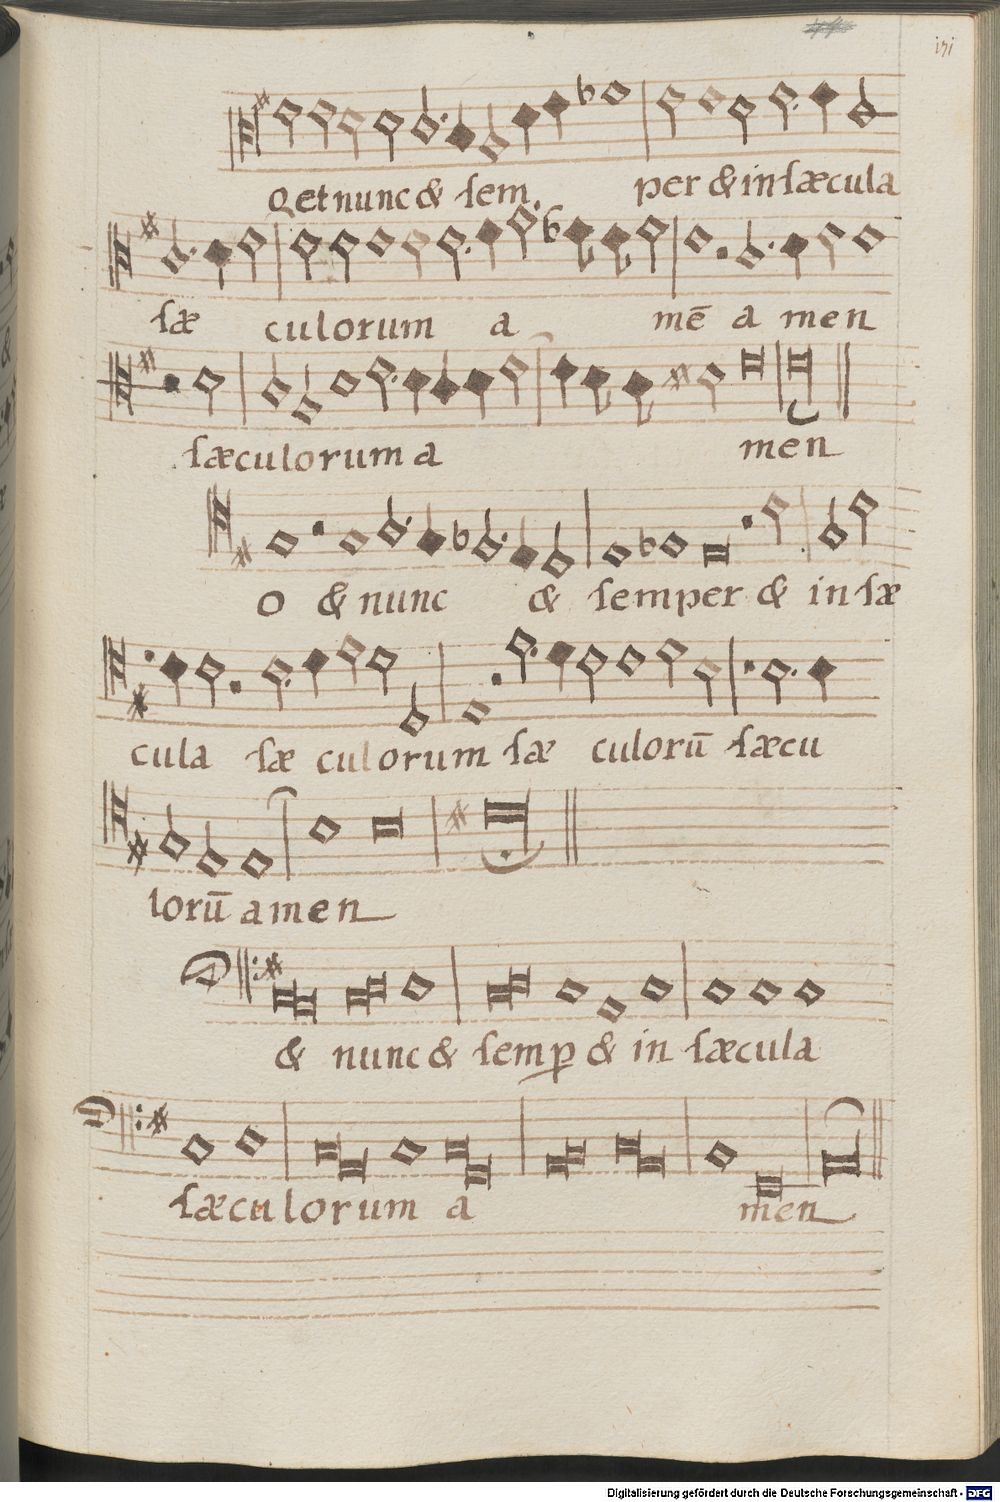 o et nunc & sem per & in sæcula
sæ culorum a mē a men
sæculorum a men
O & nunc & semper & in sæ
cula sæ culorum sæ culorū sæcu
lorū amen
& nunc & semp & in sæcula
sæculorum a men
Digitalisierung gefördert durch die Deutsche Forschungsgemeinschaft - DFG